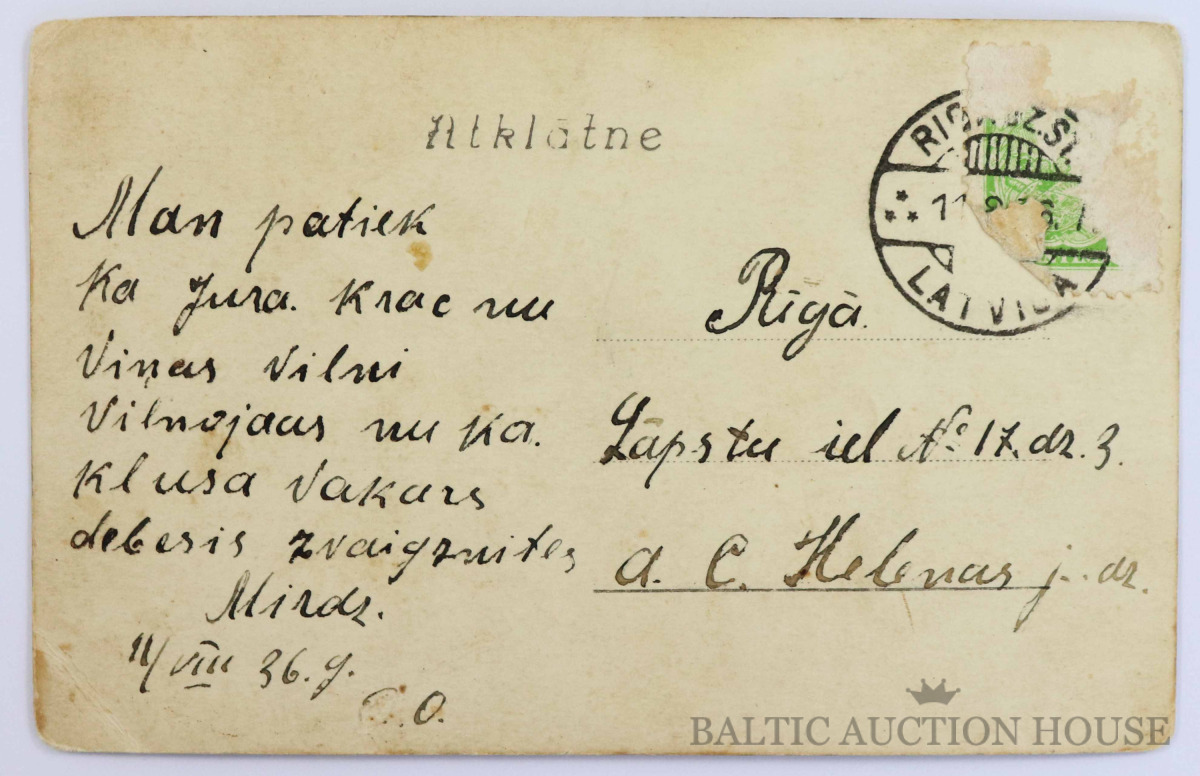 Atklātne
Man patiek
Ka Jura. Krac nu
Viņas Vilni
Vilnojaas nu ka.
Klusa Vakars
debesis zvaigznites
Mirdz.
11/VIII 36. g.
O.
Rīgā.
Lāpstu iel No 17. dz. 3.
A. C. Helenas j. dz.
LATVIJA
BALTIC AUCTION HOUSE